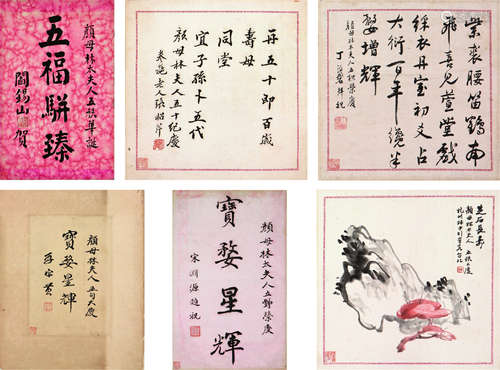 顏母林太夫人五秩華誕
五福駢臻
閻錫山 賀
再五十即百歲
壽母
同堂
宜子孫卜五代
顏母林太夫人五十紀慶
張昭芹
紫裳腰笛鶴南
飛喜見萱堂戲
綵衣丹室初爻占
大衍百年纔半
婺增輝
顏母林太夫人五秩榮慶
拜祝
顏母林太夫人五旬大慶
寶婺星輝
顏母林太夫人五秩榮慶
寶婺星輝
宋淵源題祝
芝石長壽
顏母林太夫人五秩大慶